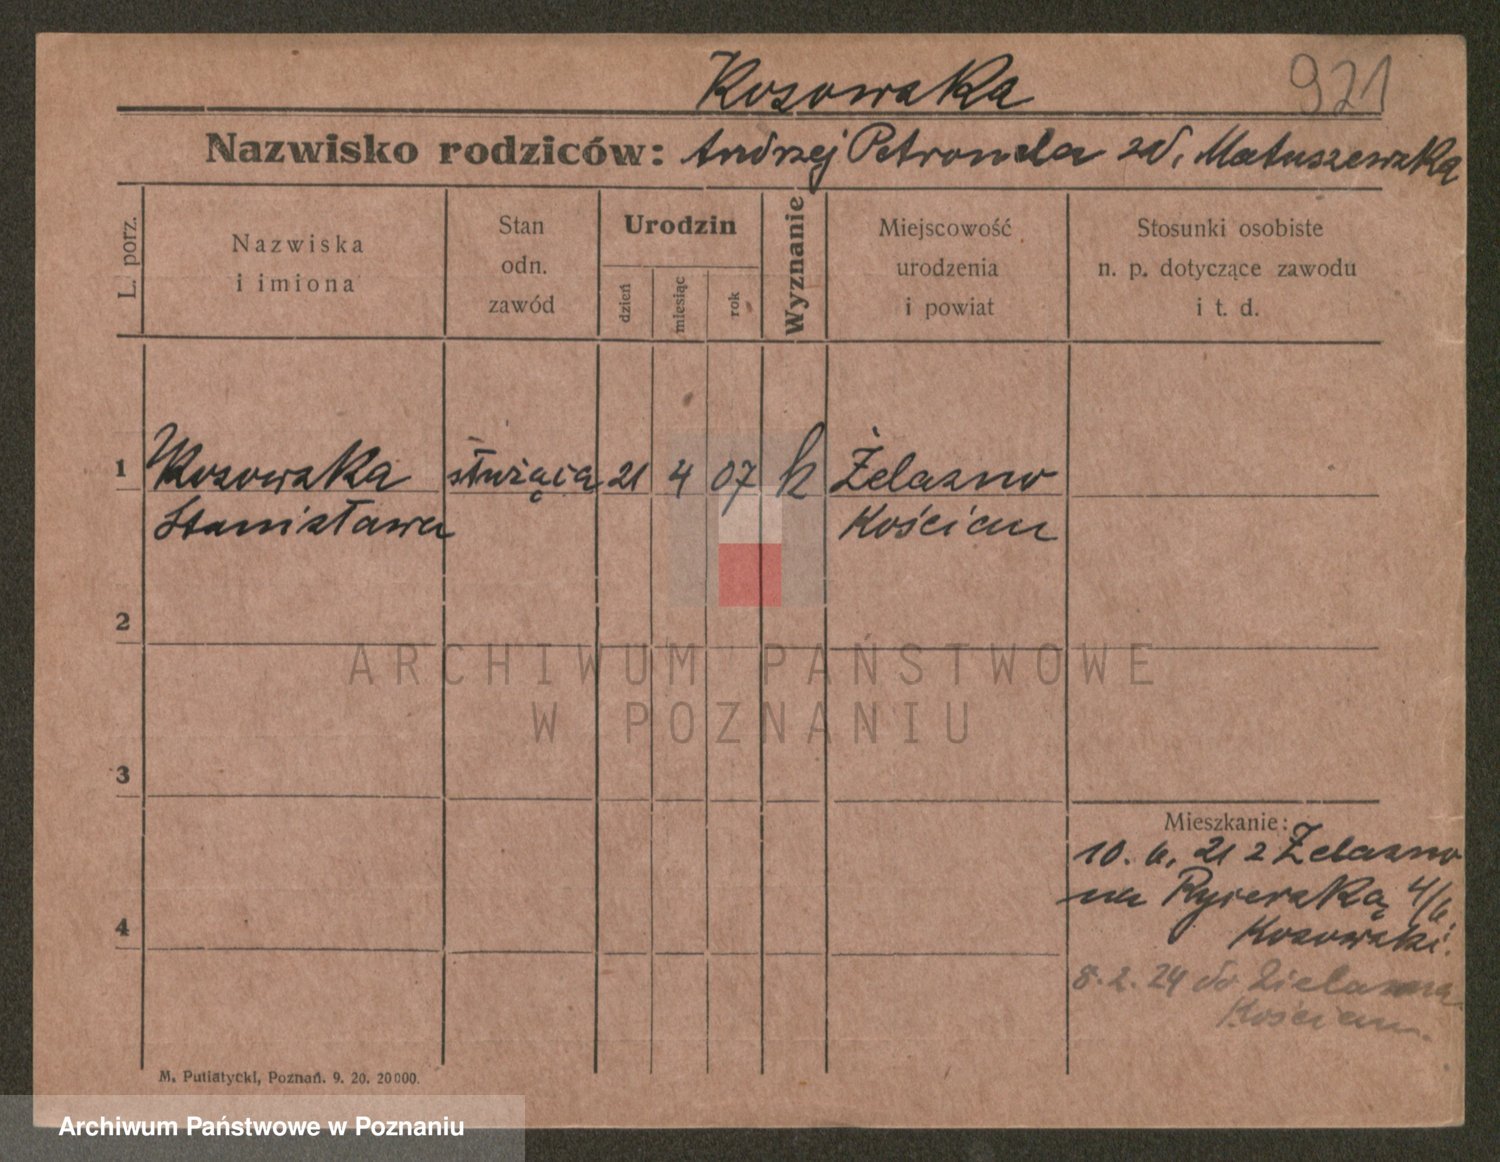 Kosowska 921
Nazwisko rodziców: Andrzej Petronela zd. Matuszewska
L. porz.
Nazwiska
i imiona
Stan
odn.
zawód
Urodzin
dzień
miesiąc
rok
Wyznanie
Miejscowość
urodzenia
i powiat
Stosunki osobiste
n. p. dotyczące zawodu
i t. d.
1 Kosowska służąca 21 4 07 k Żelazno
Stanisława Kościan
2
ARCHIWUM PAŃSTWOWE
W POZNANIU
3
Mieszkanie:
10. 6. 21 z Żelazno
na Rycerską 4/6.
Kosowski.
4
8. 2. 24 do
Kościan.
M. Putiatycki, Poznań. 9. 20. 20000.
Archiwum Państwowe w Poznaniu